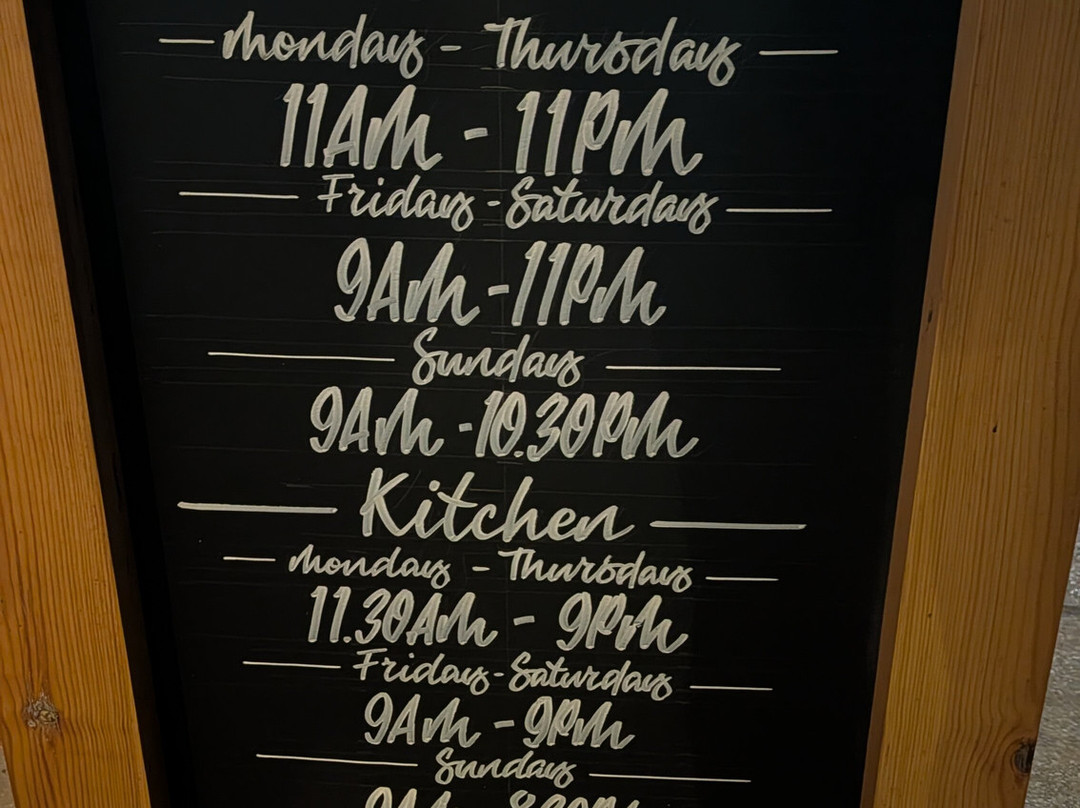 Monday - Thursday
11AM - 11PM
Friday - Saturday
9AM - 11PM
Sunday
9AM - 10.30PM
Kitchen
Monday - Thursday
11.30AM - 9PM
Friday - Saturday
9AM - 9PM
Sunday
9AM -